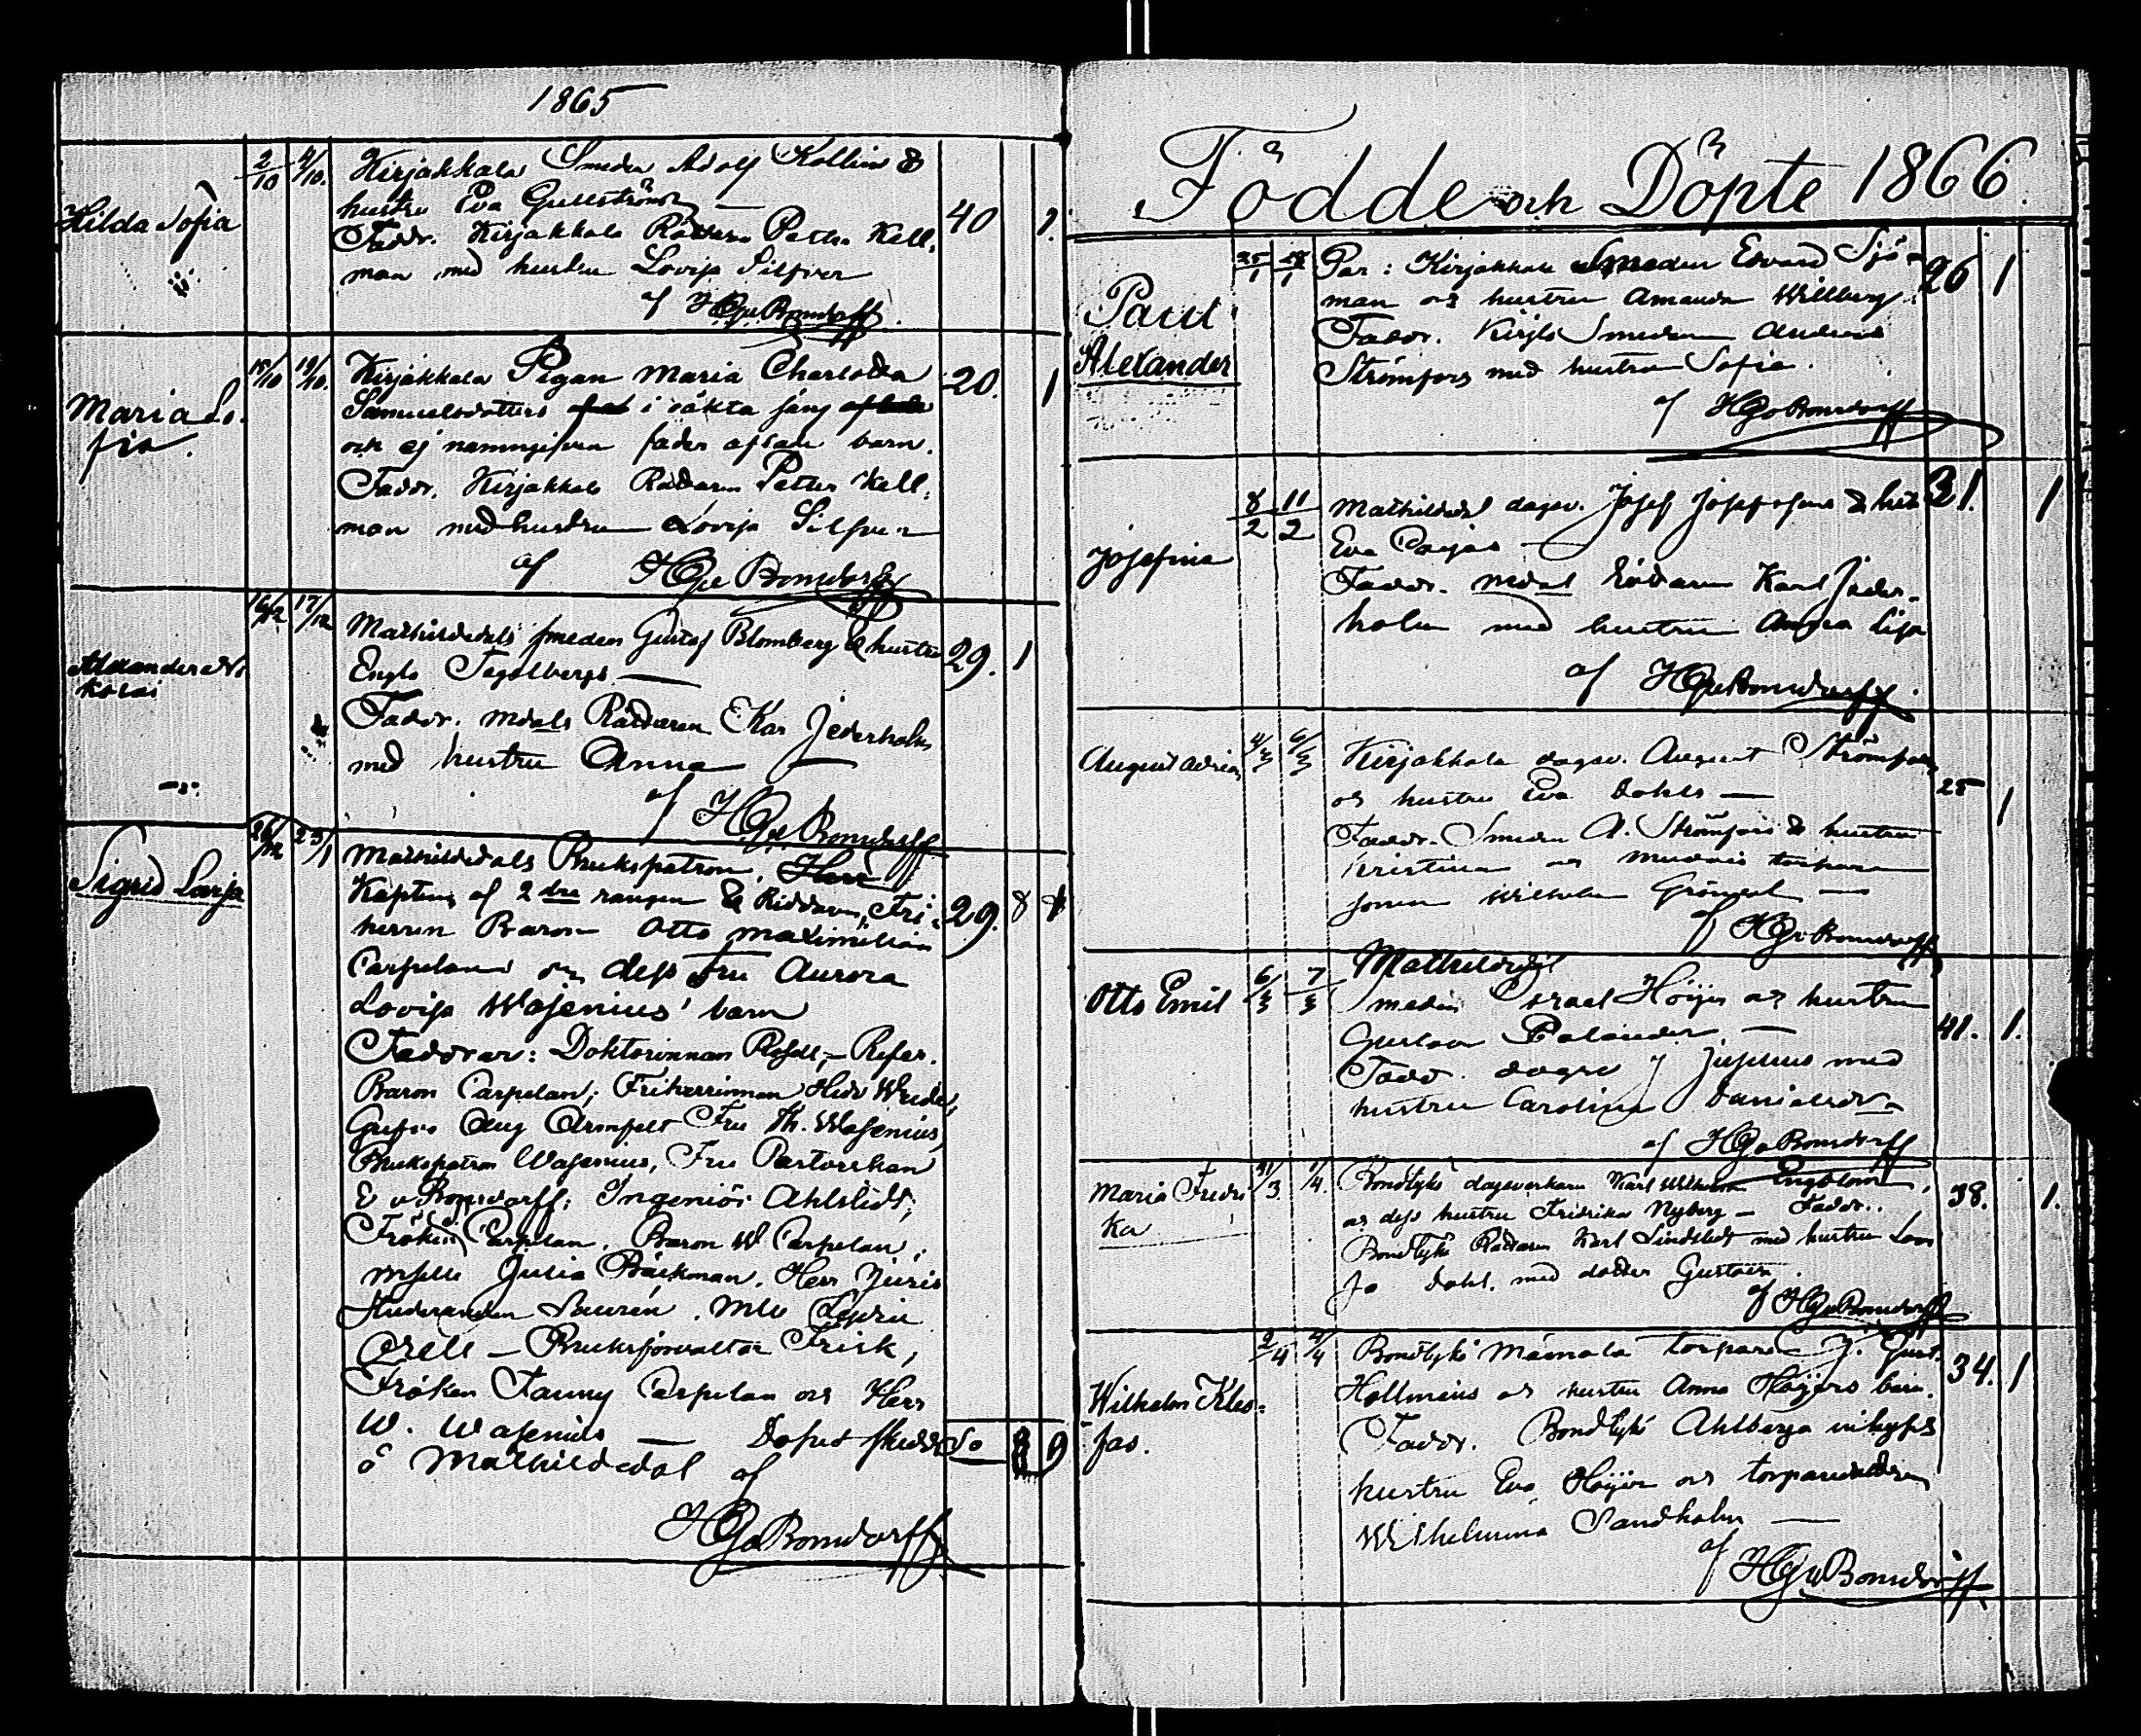 1865
Hilda Sofia
2/10 4/10.
Kirjakkala Smeden Adolf Kollin &
hustru Eva Gullström —
Faddr. Kirjakkala Rättaren Petter Kell-
man med hustru Lovisa Silfver
af HG v Bonsdorff.
40 1.
Maria So-
fia.
15/10 19/10.
Kirjakkala Pigan Maria Charlotta
Samuelsdotters i oäkta säng
och ej namngifven fader aflade barn.
Faddr. Kirjakkala Rättaren Petter Kell-
man med hustru Lovisa Silfver
af HG v Bonsdorff
20. 1
Alexander Ni
kolai
16/12 17/12
Mathildedals smeden Gustaf Blomberg & hustru
Engla Tegelbergs —
Faddr. Mdals Rättaren Karl Jederholm
med hustru Anna —
af HG v Bonsdorff
29. 1
Sigrid Lovisa
26/12 23/1
Mathildedals Brukspatron, Herr
Kapten af 2dra rangen & Riddaren, Fri-
herren Baron Otto Maximilian
Carpelan och dess Fru Aurora
Lovisa Wasenius' barn
Faddrar: Doktorinnan
Baron Carpelan; Friherrinnan Wrede,
Aug Armfelt Fru Th. Wasenius,
Brukspatron Wasenius, Fru Pastorskan
E v Bonsdorff; Ingeniör Ahlstedt;
Fröken Carpelan. Baron W Carpelan,
Mselle Julia Bäckman. Herr Juris
Studeranden Saurén.
Orell — Bruksförvaltar Frisk,
Fröken Fanny Carpelan och Herr
W. Wasenius — Dopet skedde
å Mathildedal af
HG v Bonsdorff
29. 8
9
Födde och Döpte 1866.
Paul
Alexander
25/1 28/1
Par: Kirjakkala Smeden Edvard Sjö-
man och hustru Amanda Willberg
Faddr. Kirjla Smeden Anders
Strömfors med hustru Sofia.
af HG v Bonsdorff
26 1
Josefina
8/2 11/2
Mathildedal dagsv. Josef Josefsson &
Eva
Faddr. Mdal Rättaren Karl Jeder-
holm med hustru Anna Lisa
af HG v Bonsdorff.
31. 1
August Adrian
4/3 6/3
Kirjakkala dagsv. August Strömfors
och hustru Eva Dahls —
Faddr. Smeden A. Strömfors & hustru
Kristina och torpare
sonen Wilhelm Grönqvist —
af HG v Bonsdorff
25 1
Otto Emil
6/3 7/3
Mathildedal
smeden Israel Höijer och hustru
Gustava Palander —
Fadd. dagsv J Juselius med
hustru Carolina Danielsdr
af HG v Bonsdorff
41. 1.
Maria Fredri
ka
31/3 1/4.
Bondtykö dagsverkare Karl Wilhelm Engblom,
och dess hustru Fredrika Nyberg — Faddr.
Bondtykö Rättaren Karl Lindstedt med hustru Lovi
sa Dahl. med dotter Gustava
af HG v Bonsdorff
38. 1.
Wilhelm Kleo-
fas.
2/4 4/4
Bondtykö Mamala torparen J. Gust.
Hollmens och hustru Anna Höijers barn.
Faddr. Bondtykö Ahlbergs inhyses
hustru Eva Höijer och torparedottern
Wilhelmina Sandholm —
af HG v Bonsdorff
34. 1